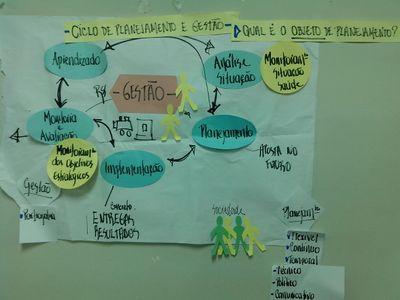 - CICLO DE PLANEJAMENTO E GESTÃO -
QUAL É O OBJETO DE PLANEJAMENTO?
Aprendizado
Análise
Situação
Monitoramto
Situação
Saúde
- GESTÃO -
Monitoria
e
Avaliação
Planejamento
Monitoramto
dos Objetivos
Estratégicos
Implementação
APOSTA NO
FUTURO
Gestão
Participativa
ENTREGAS
RESULTADOS
Sociedade
Planejamto
Flexível
Contínuo
Temporal
- Técnico
- Político
- Comunicativo